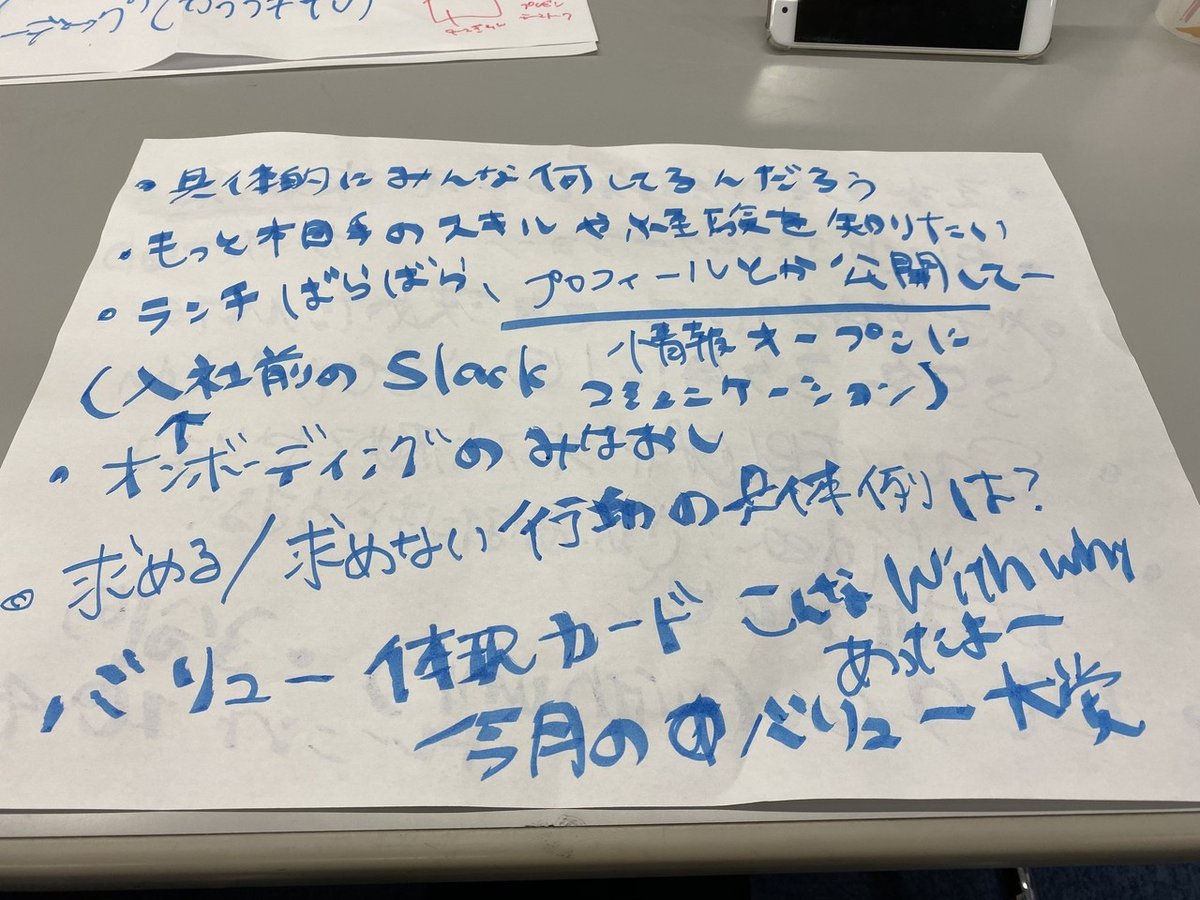 ・具体的にみんな何してるんだろう
・もっと相手のスキルや経験を知りたい
・ランチばらばら、プロフィールとか公開してー
(入社前のSlack 情報オープンに
コミュニケーション)
↑
・オンボーディングのみなおし
◎ 求める/求めない行動の具体例は?
バリュー体現カード こんなWith why
あったよー
今月のバリュー大賞